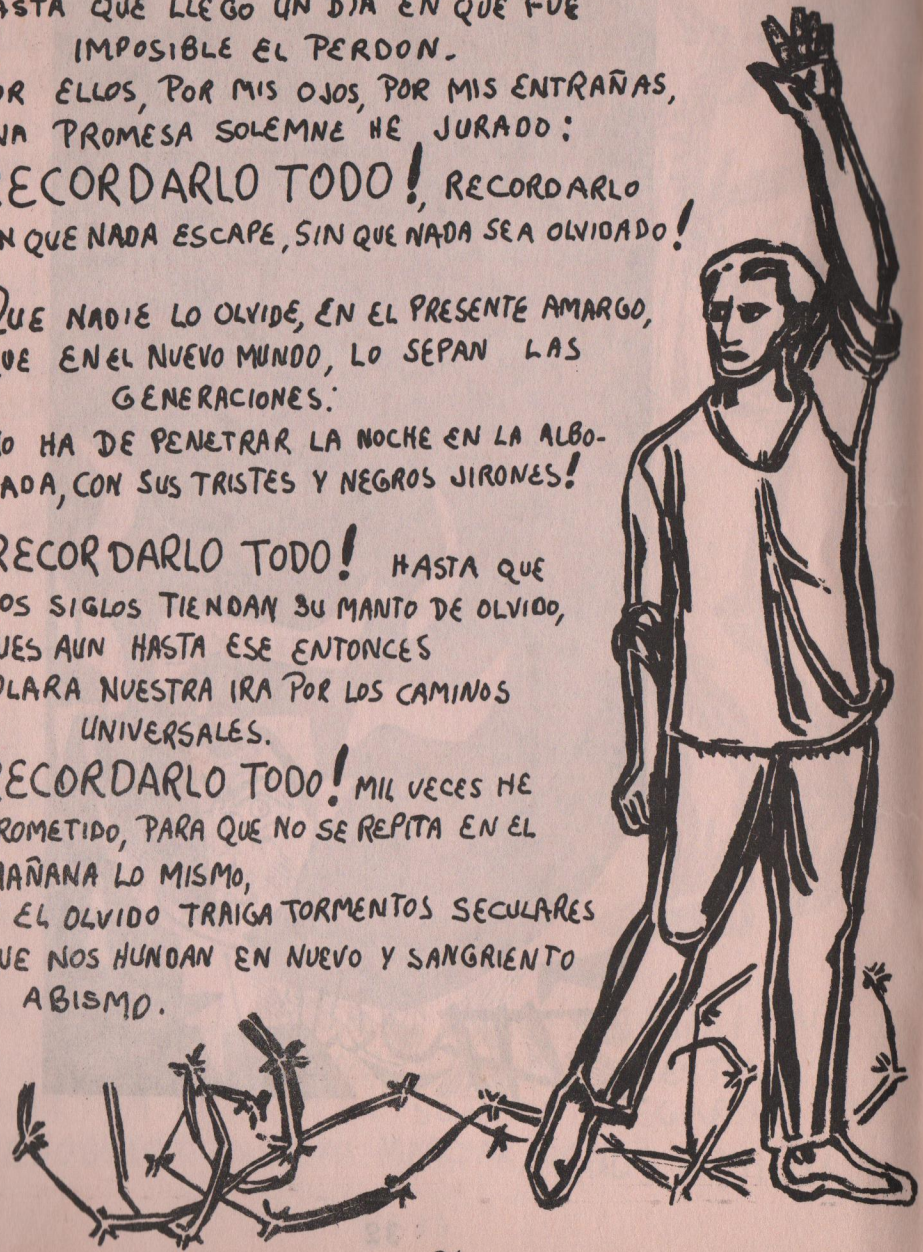 ASTA QUE LLEGO UN DIA EN QUE FUE
IMPOSIBLE EL PERDON.
OR ELLOS, POR MIS OJOS, POR MIS ENTRAÑAS,
NA PROMESA SOLEMNE HE JURADO:
ECORDARLO TODO!, RECORDARLO
N QUE NADA ESCAPE, SIN QUE NADA SEA OLVIDADO!
QUE NADIE LO OLVIDE, EN EL PRESENTE AMARGO,
UE EN EL NUEVO MUNDO, LO SEPAN LAS
GENERACIONES:
O HA DE PENETRAR LA NOCHE EN LA ALBO-
ADA, CON SUS TRISTES Y NEGROS JIRONES!
RECORDARLO TODO! HASTA QUE
OS SIGLOS TIENDAN SU MANTO DE OLVIDO,
UES AUN HASTA ESE ENTONCES
OLARA NUESTRA IRA POR LOS CAMINOS
UNIVERSALES.
RECORDARLO TODO! MIL VECES HE
ROMETIDO, PARA QUE NO SE REPITA EN EL
MAÑANA LO MISMO,
EL OLVIDO TRAIGA TORMENTOS SECULARES
UE NOS HUNDAN EN NUEVO Y SANGRIENTO
ABISMO.